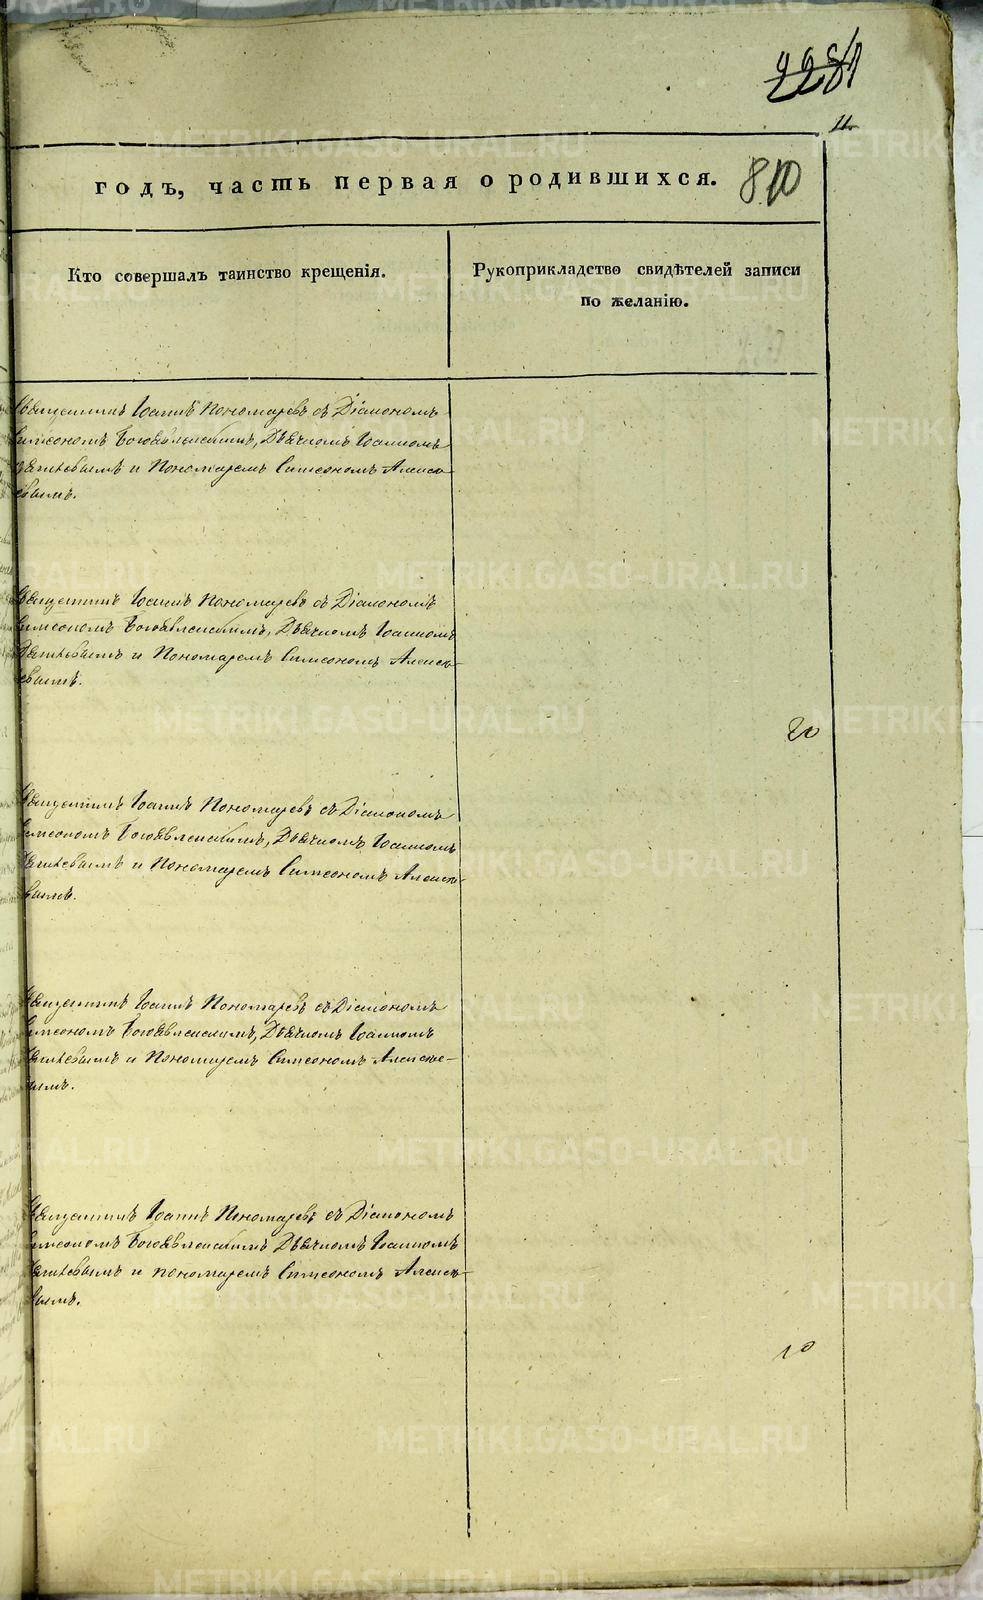 11.
годъ, часть первая о родившихся. 810
Кто совершалъ таинство крещенія.
Рукоприкладство свидѣтелей записи
по желанію.
Священникъ Іоаннъ Пономаревъ съ Діакономъ
Симеономъ Богоявленскимъ, Дьячкомъ Іоанномъ
и Пономаремъ Симеономъ Алексѣ-
евымъ.
Священникъ Іоаннъ Пономаревъ съ Діакономъ
Симеономъ Богоявленскимъ, Дьячкомъ Іоанномъ
и Пономаремъ Симеономъ Алексѣ-
евымъ.
20
Священникъ Іоаннъ Пономаревъ съ Діакономъ
Симеономъ Богоявленскимъ, Дьячкомъ Іоанномъ
и Пономаремъ Симеономъ Алексѣ-
евымъ.
Священникъ Іоаннъ Пономаревъ съ Діакономъ
Симеономъ Богоявленскимъ, Дьячкомъ Іоанномъ
и Пономаремъ Симеономъ Алексѣе-
вымъ.
Священникъ Іоаннъ Пономаревъ съ Діакономъ
Симеономъ Богоявленскимъ Дьячкомъ Іоанномъ
и пономаремъ Симеономъ Алексѣ-
евымъ.
10
METRIKI.GASO-URAL.RU